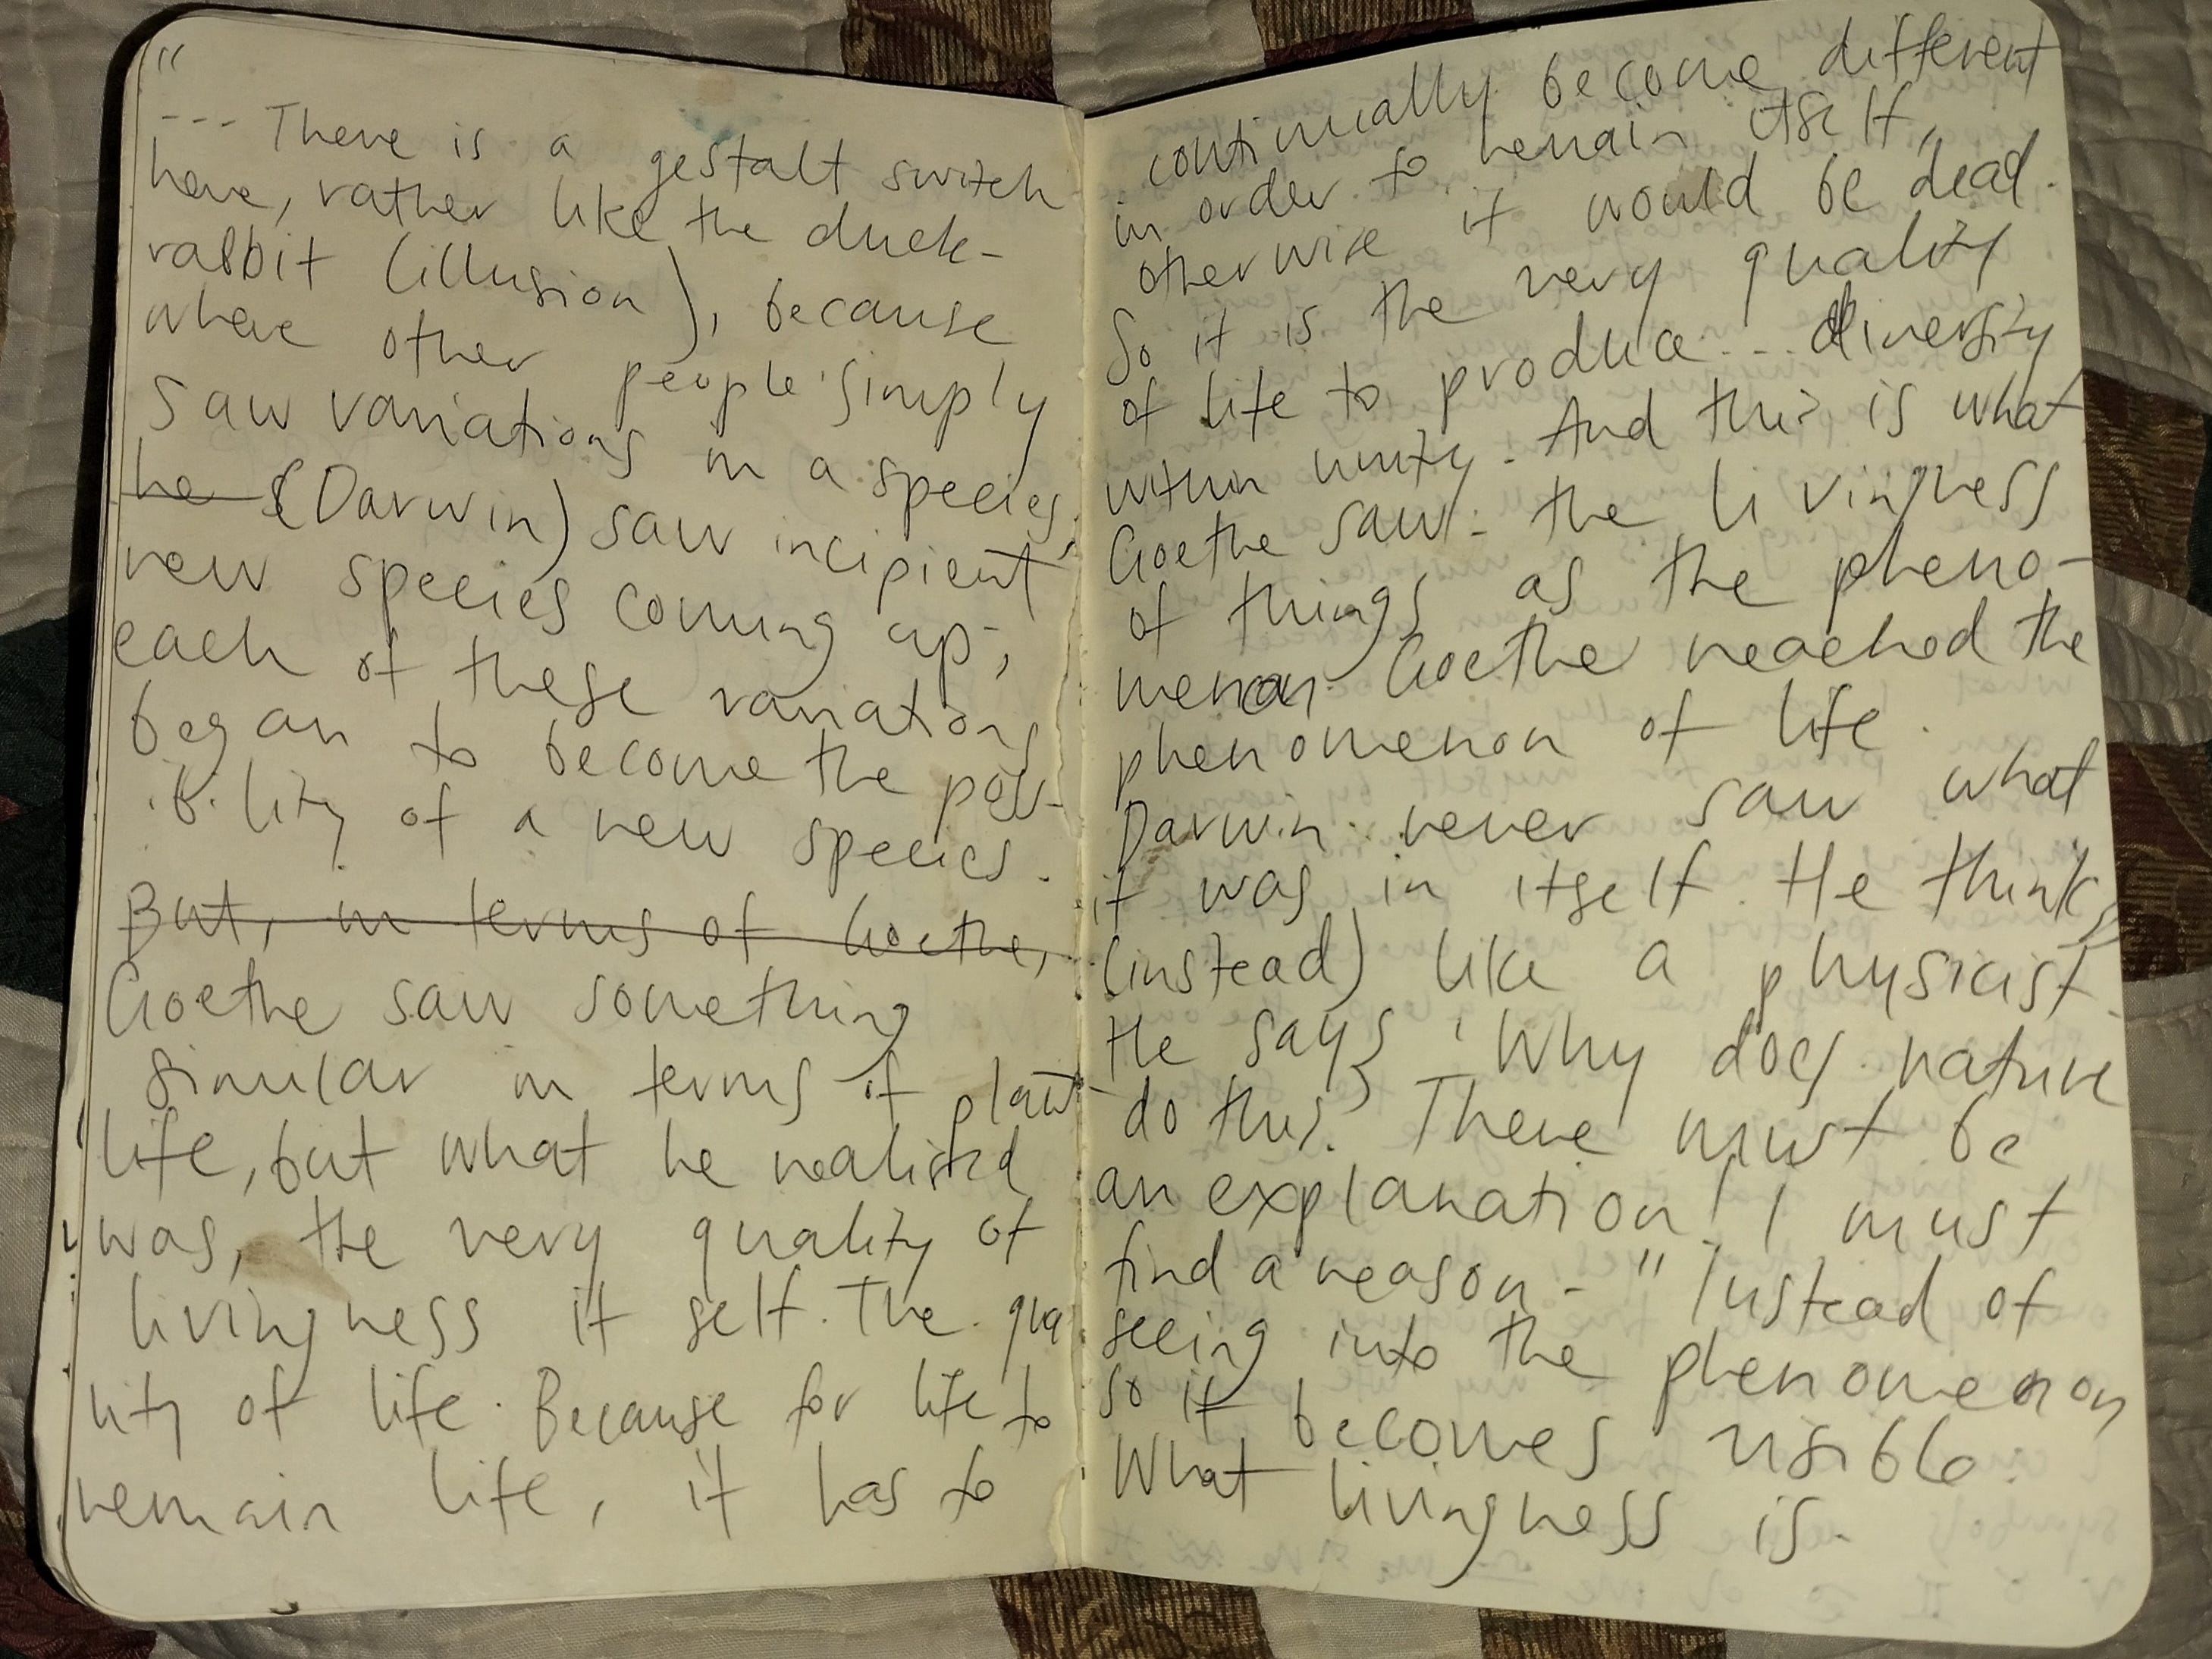 "
--- There is a gestalt switch
here, rather like the duck-
rabbit (illusion), because
where other people simply
saw variations in a species,
he (Darwin) saw incipient
new species coming up;
each of these variations
began to become the poss-
ibility of a new species.
But, in terms of Goethe,
Goethe saw something
similar in terms of plant
life, but what he realised
was, the very quality of
livingness it self. The qua
lity of life. Because for life to
remain life, it has to
continually become different
in order to remain itself,
otherwise it would be dead.
So it is the very quality
of life to produce... diversity
within unity. And this is what
Goethe saw: the livingness
of things as the pheno-
menon. Goethe reached the
phenomenon of life.
Darwin never saw what
it was in itself. He thinks
(instead) like a physicist.
He says 'Why does nature
do this? There must be
an explanation! I must
find a reason-" Instead of
seeing into the phenomenon
so it becomes visible.
What livingness is.